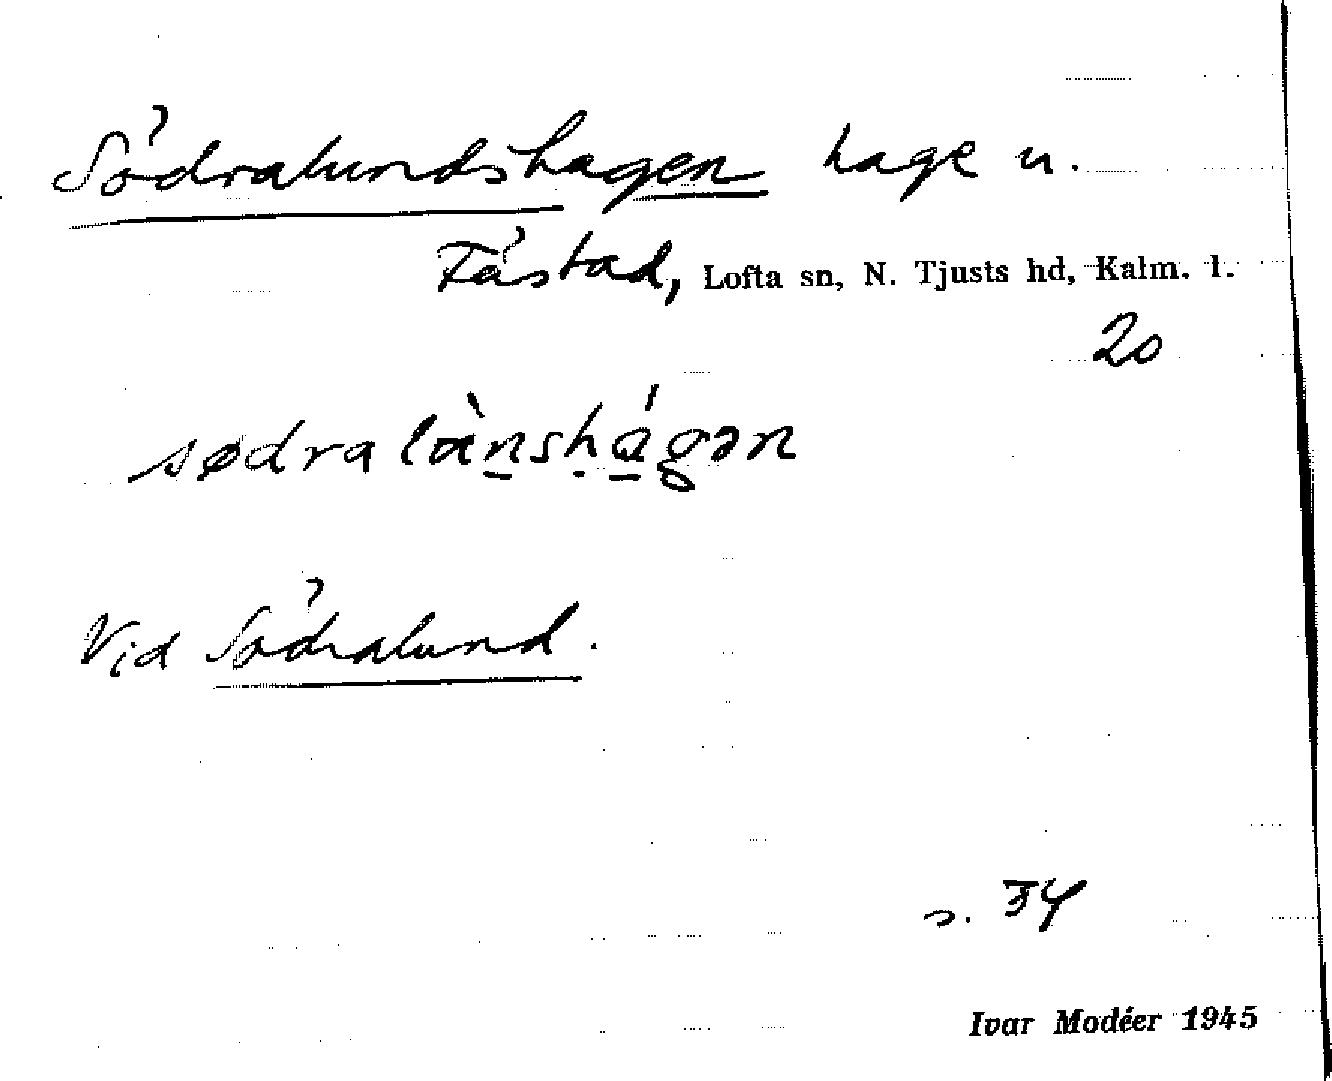 Södralundshagen hage u.
Fästad, Lofta sn, N. Tjusts hd, Kalm. l.
20
sødralànshágən
Vid Södralund.
s. 34
Ivar Modéer 1945